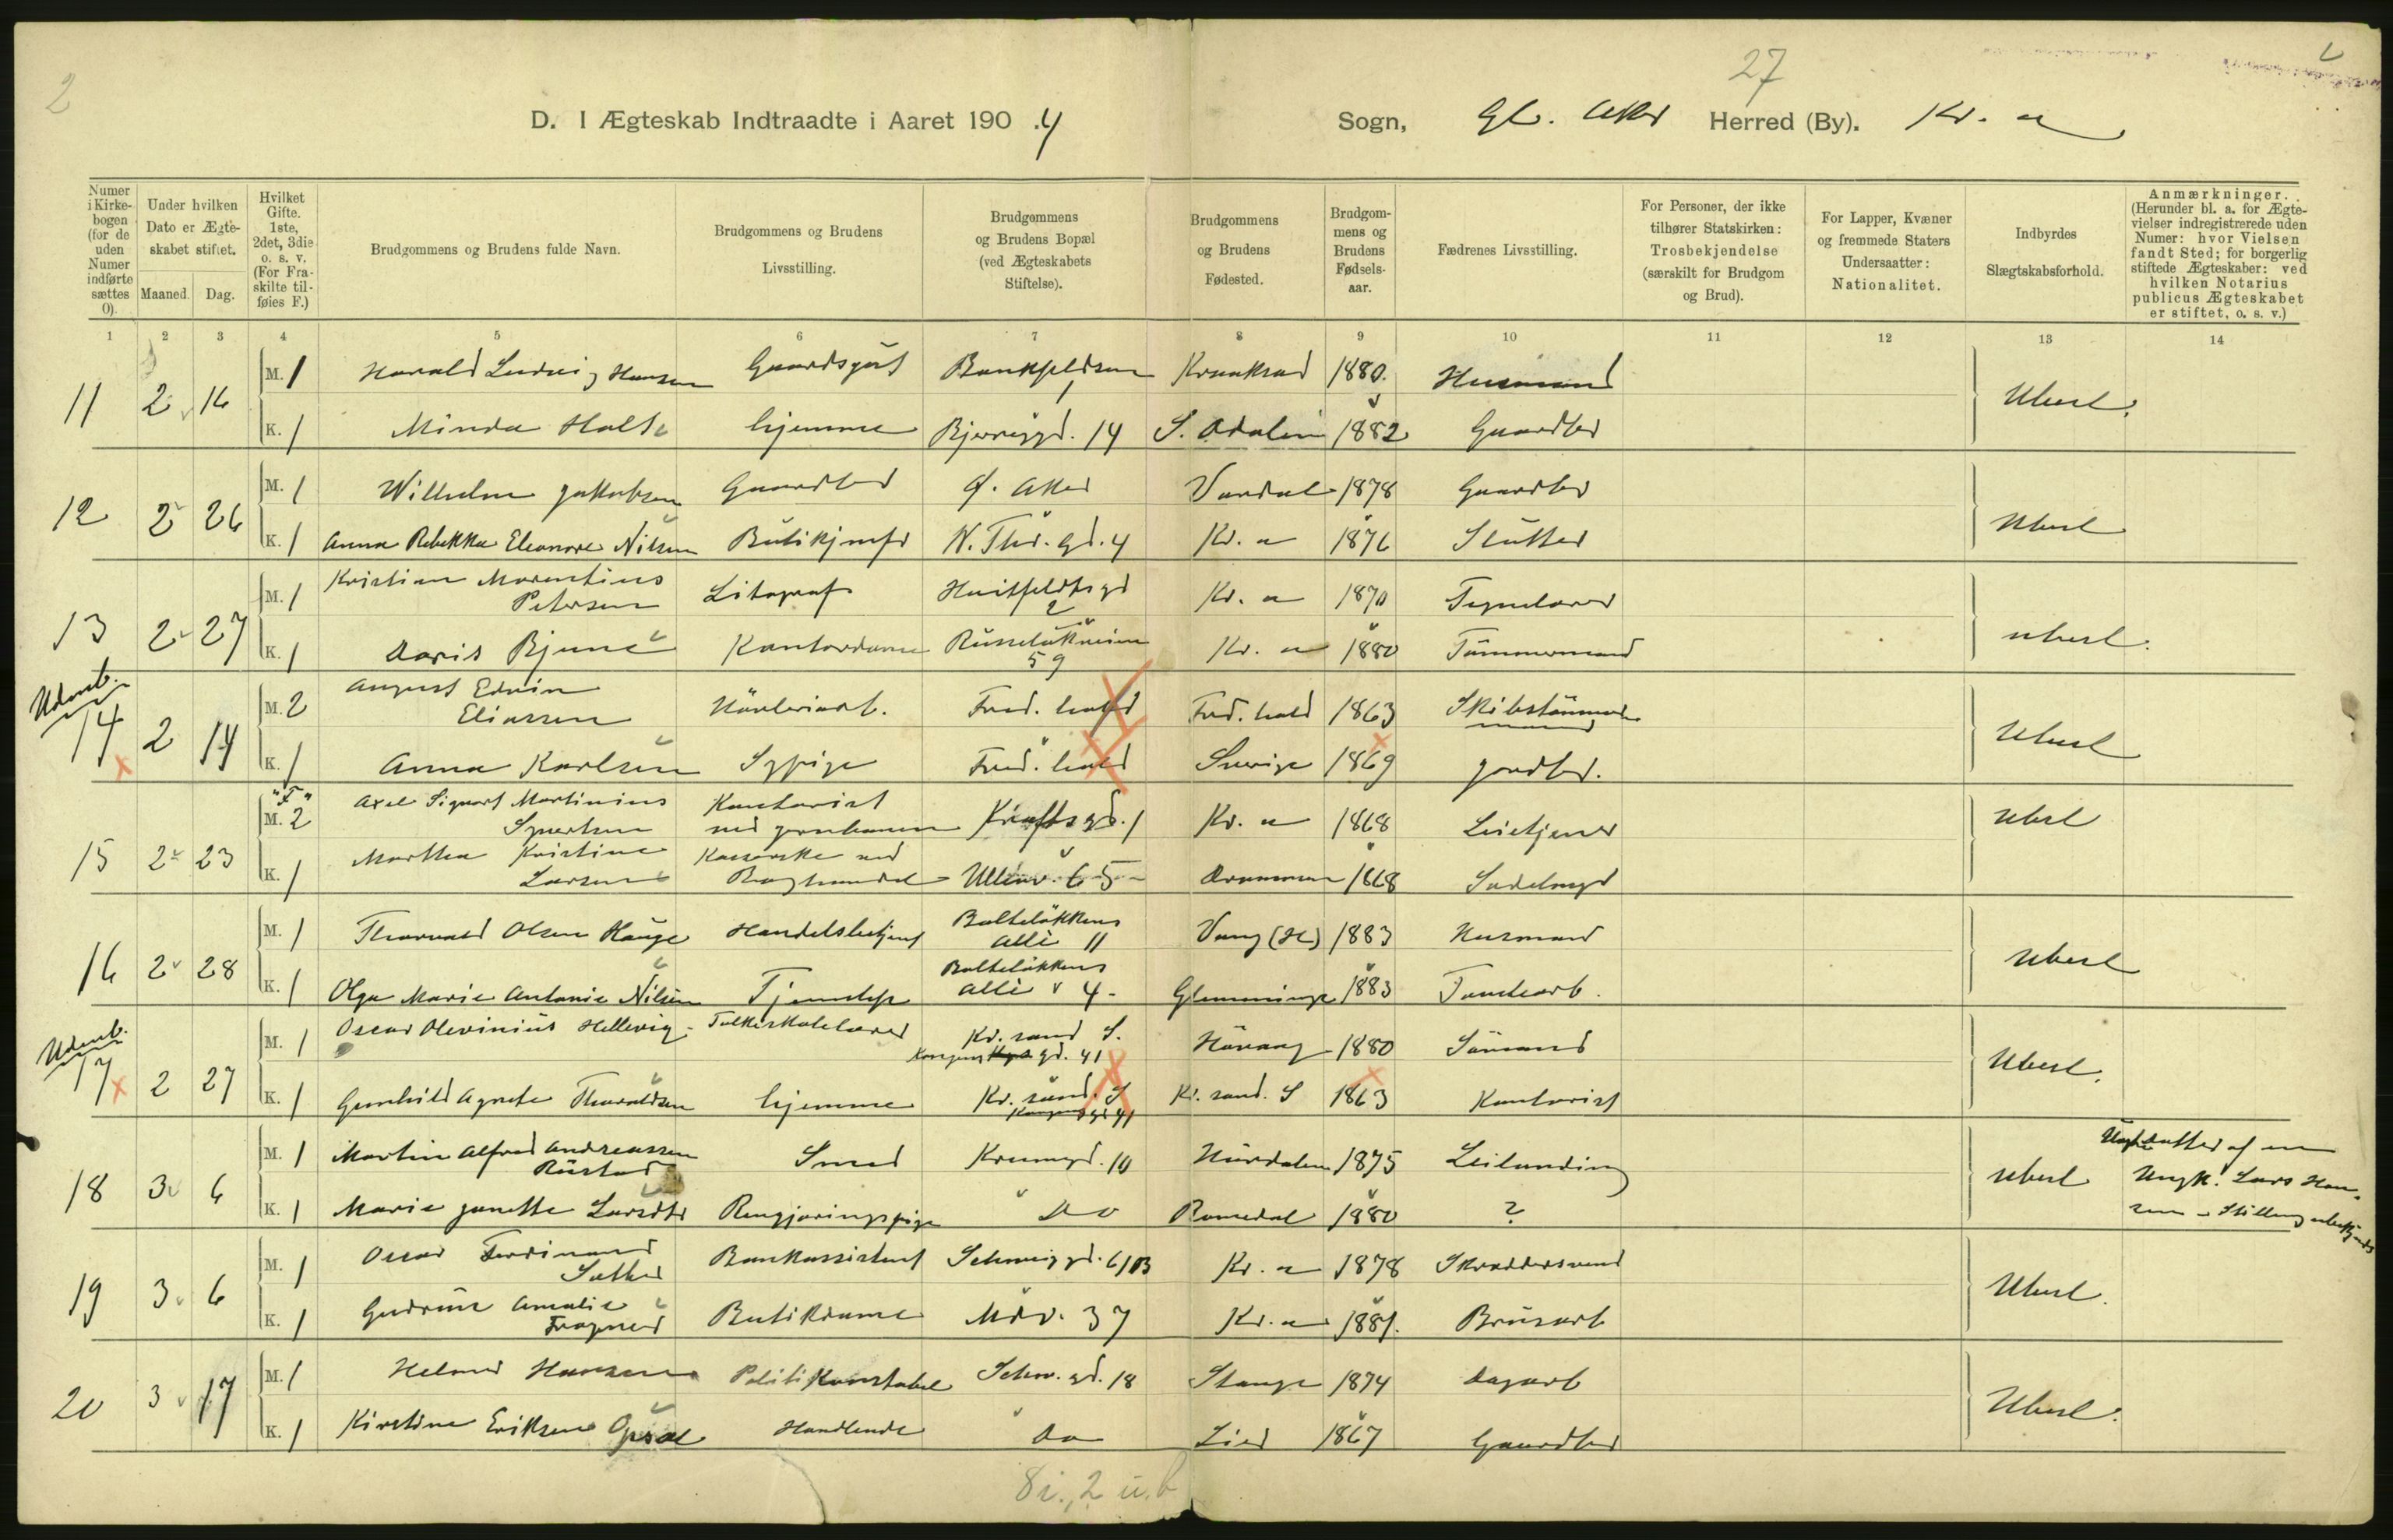 2
27
D. I Ægteskab Indtraadte i Aaret 190.4
Sogn, Gl. Aker Herred (By). Kr. a
Numer i Kirkebogen (for de uden Numer indførte sættes 0).
Under hvilken Dato er Ægteskabet stiftet.
Maaned. Dag.
Hvilket Gifte. 1ste, 2det, 3die o. s. v. (For Fraskilte tilføies F.)
Brudgommens og Brudens fulde Navn.
Brudgommens og Brudens Livsstilling.
Brudgommens og Brudens Bopæl (ved Ægteskabets Stiftelse).
Brudgommens og Brudens Fødested.
Brudgommens og Brudens Fødselsaar.
Fædrenes Livsstilling.
For Personer, der ikke tilhører Statskirken: Trosbekjendelse (særskilt for Brudgom og Brud).
For Lapper, Kvæner og fremmede Staters Undersaatter: Nationalitet.
Indbyrdes Slægtskabsforhold.
Anmærkninger. (Herunder bl. a. for Ægtevielser indregistrerede uden Numer: hvor Vielsen fandt Sted; for borgerlig stiftede Ægteskaber: ved hvilken Notarius publicus Ægteskabet er stiftet, o. s. v.)
1 2 3 4 5 6 7 8 9 10 11 12 13 14
11 2 16 M. 1 Harald Ludvig Hansen Gaardsgut 1880. Husmand Ubesl.
K. 1 Minda Holte hjemme Bjerregd. 14 S. Odalen 1882 Gaardbr
12 2 26 M. 1 Wilhelm Jakobsen Gaardbr Ø. Aker Vardal 1878 Gaardbr Ubesl
K. 1 Anna Rebekka Eleonore Nilsen Butikjmfr N. Thr. gd. 4 Kr. a 1876 Slutter
13 2 27 M. 1 Kristian Morentius Petersen Litograf Huitfeldtsgd 2 Kr. a 1870 Ubesl.
K. 1 Doris Bjune Kontordame Russeløkveien 59 Kr. a 1880 Tømmermand
Udenb.
14 2 14 M. 2 August Edvin Eliassen Fred. hald Fred. hald 1863 Skibstømmermand Ubesl
K. 1 Anna Karlsen Sypige Fred. hald Sverige 1869 Jordbr.
"F"
15 2 23 M. 2 Axel Sigvart Martinius Syvertsen Kontorist ved jernbanen Kraftsgd. 1 Kr. a 1868 Leietjener Ubesl
K. 1 Martha Kristine Larsen Kasserske ved Boghandel Ullevv. 65 Drammen 1868 Sadelmgr
16 2 28 M. 1 Thorvald Olsen Hauge Handelsbetjent Bolteløkkens Allé 11 Vang (H) 1883 Husmand Ubesl
K. 1 Olga Marie Antonie Nilsen Tjenestep Bolteløkkens Allé 4. Glemminge 1883 Tomtearb.
Udenb.
17 2 27 M. 1 Oscar Olevinius Hellevig Folkeskolelærer Kr. sand S. Kongens gd. 41 Høvaag 1880 Sømand Ubesl.
K. 1 Gunhild Agnete Thorvaldsen hjemme Kr. sand. S Kongens gd 41 Kr. sand. S 1863 Kontorist
18 3 6 M. 1 Martin Alfred Andreassen Rustad Smed Krumgd. 10 Hurdalen 1875 Leilænding Ubesl datter af en Ungk. Lars Hansen - Stilling ubekjendt
K. 1 Marie Janette Larsdtr Rengjøringspige Do Romedal 1880 ?
19 3 6 M. 1 Oscar Ferdinand Sæther Bankassistent Schweiggd. 6/B Kr. a 1878 Skræddersvend Ubesl.
K. 1 Gudrun Amalie Fragner Butikdame Mdv. 37 Kr. a 1881. Brusarb
20 3 17 M. 1 Helmer Hansen Politikonstabel Schw. gd. 18 Stange 1874 Dagarb Ubesl.
K. 1 Kirstine Eriksen Opsal Handlende Do Lier 1867 Gaardbr
8 i., 2 u. b